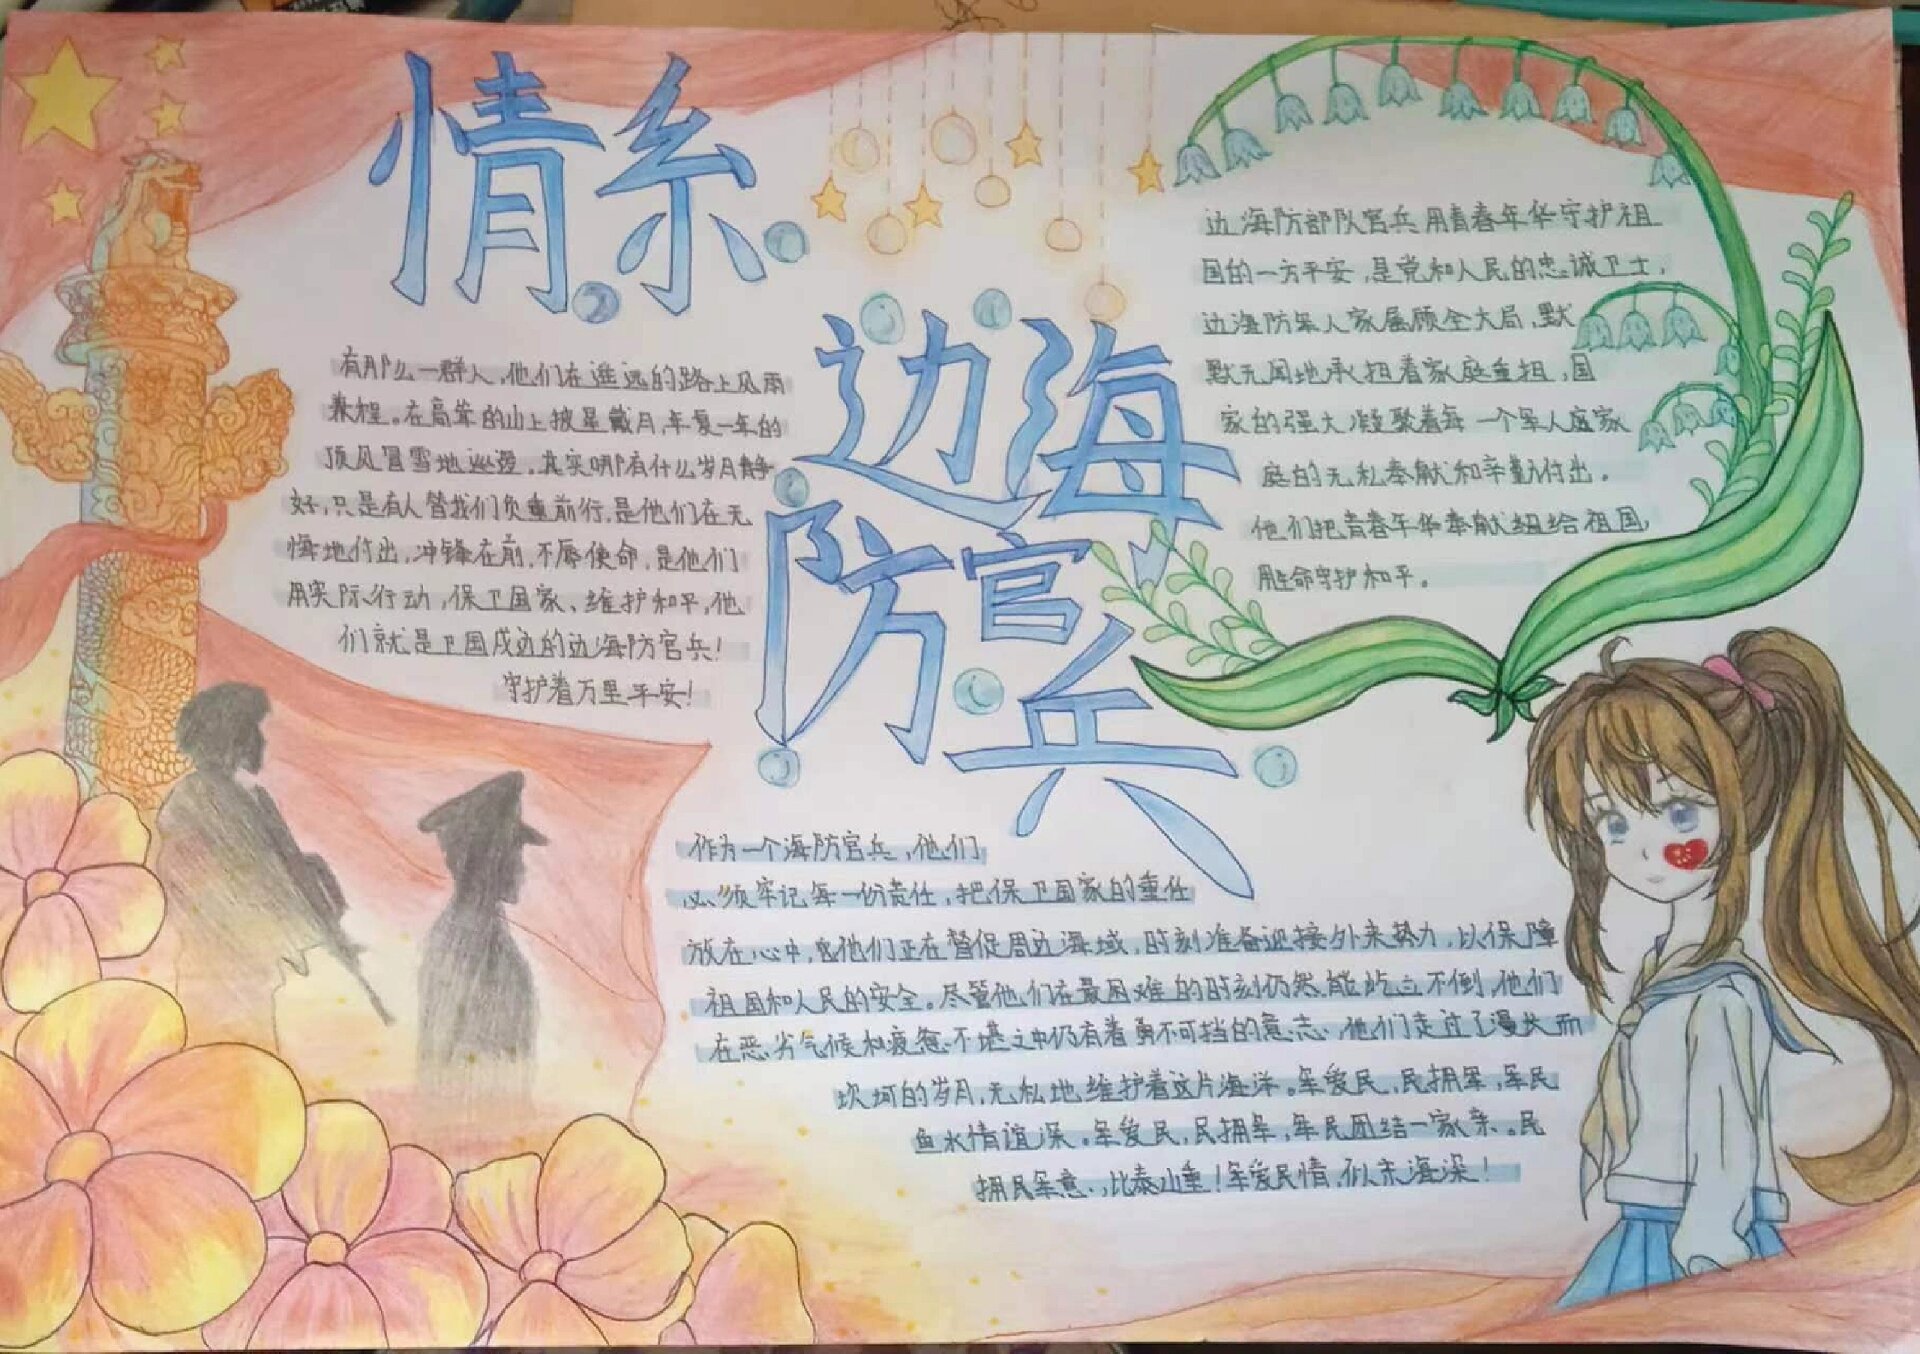 情系
边海
防官兵
有那么一群人，他们在遥远的路上风雨
兼程。在高耸的山上披星戴月，年复一年的
顶风冒雪地巡逻。其实哪有什么岁月静
好，只是有人替我们负重前行，是他们在无
悔地付出，冲锋在前，不辱使命，是他们
用实际行动，保卫国家、维护和平，他
们就是卫国戍边的边海防官兵！
守护着万里平安！
边海防部队官兵用青春年华守护祖
国的一方平安，是党和人民的忠诚卫士，
边海防军人家属顾全大局，默
默无闻地承担着家庭重担，国
家的强大凝聚着每一个军人庭家
庭的无私奉献和辛勤付出。
他们把青春年华奉献给祖国，
用生命守护和平。
作为一个海防官兵，他们
必须牢记每一份责任，把保卫国家的重任
放在心中，他们正在督促周边海域，时刻准备迎接外来势力，以保障
祖国和人民的安全。尽管他们在最困难的时刻仍然能屹立不倒，他们
在恶劣气候和疲惫不堪之中仍有着勇不可挡的意志，他们走过了漫长而
坎坷的岁月，无私地维护着这片海洋。军爱民，民拥军，军民
鱼水情谊深。军爱民，民拥军，军民团结一家亲。民
拥民军意，比泰山重！军爱民情，似东海深！